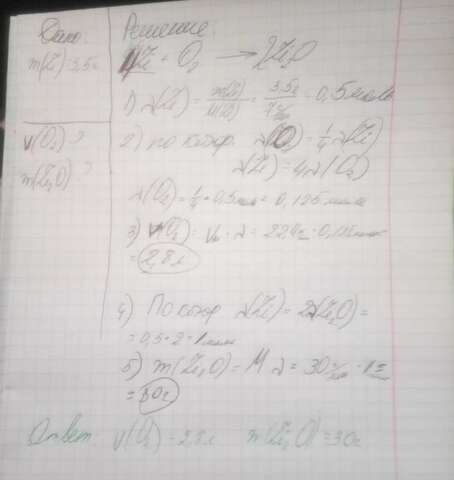 Дано:
m(Li)=3,5г
V(O₂) ?
m(Li₂O) ?
Решение:
4Li + O₂ → 2Li₂O
1) ν(Li) = m(Li)/M(Li) = 3,5г/7г/моль = 0,5 моль
2) по коэф. ν(O₂) = 1/4 ν(Li)
ν(Li) = 4ν(O₂)
ν(O₂) = 1/4 * 0,5моль = 0,125 моль
3) V(O₂) = Vm · ν = 22,4 · 0,125
= 2,8 л
4) По коэф ν(Li) = 2ν(Li₂O) =
= 0,5 * 2 = 1 моль
5) m(Li₂O) = M · ν = 30 г/моль · 1
= 30г
Ответ: V(O₂) = 2,8 л m(Li₂O) = 30г